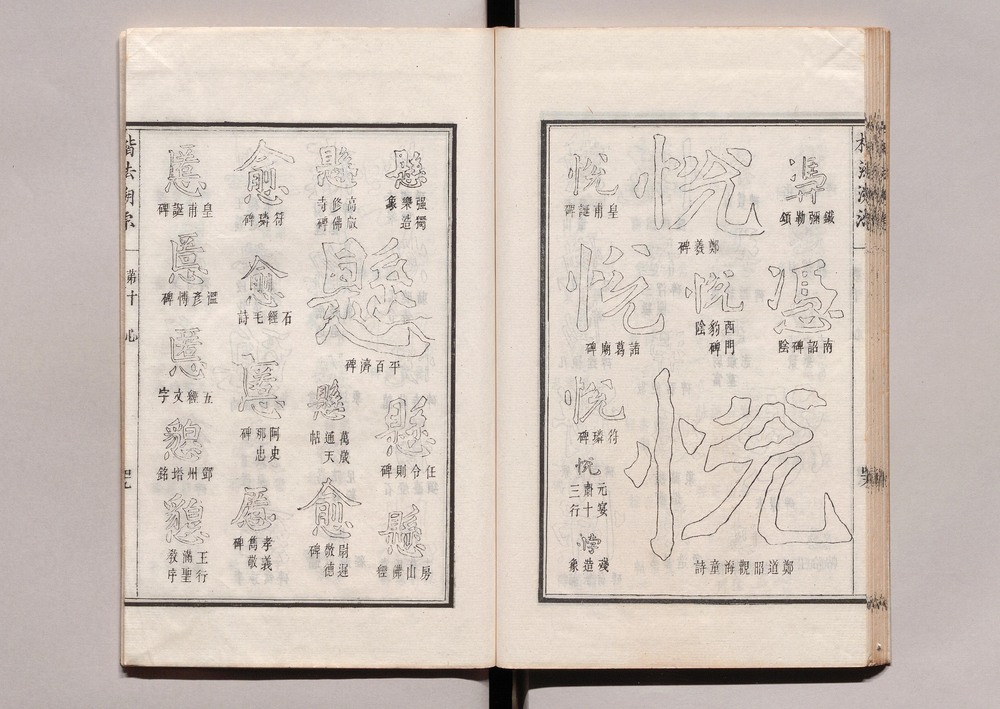 馮
鐵彌勒頌
憑
南詔碑陰
悅
鄭羲碑
悅
西門豹碑陰
悅
鄭道昭觀海童詩
悅
皇甫誕碑
悅
諸葛廟碑
悅
符璘碑
悅
元宴齋十三行
殘造象
懸
强獨樂造象
懸
任令則碑
懸
房山佛經
懸
高叡修佛寺碑
懸
平百濟碑
懸
萬歲通天帖
愈
尉遲敬德碑
愈
符璘碑
愈
石經毛詩
慝
阿史那忠碑
慝
孝義雋敬碑
慝
皇甫誕碑
慝
溫彥博碑
慝
五經文字
懇
鄧州塔銘
懇
王行滿聖教序
楷法溯源
第十
心